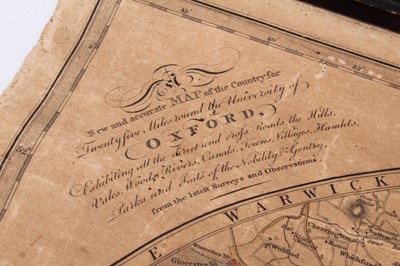 A
New and accurate MAP of the Country for
Twenty five Miles round the University of
OXFORD,
Exhibiting all the Street and cross Roads the Hills.
Vales, Woods, Rivers, Canals, Towns, Villages, Hamlets,
Parks and Seats of the Nobility & Gentry,
from the latest Surveys and Observations.
E WARWICK
Cherrington
Wolford
Whichford
Gloucester Sh.